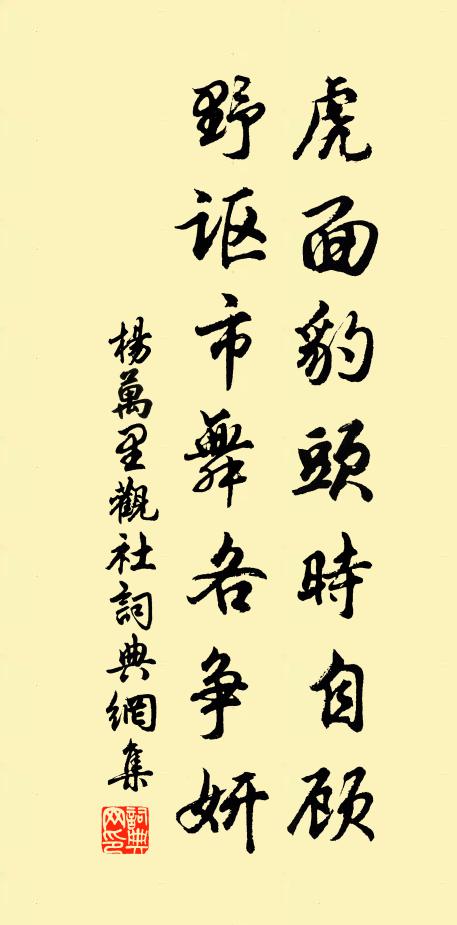 虎面豹頭時自顧
野讴市舞各争妍
楊萬里觀社詞典網集
詞典
网印